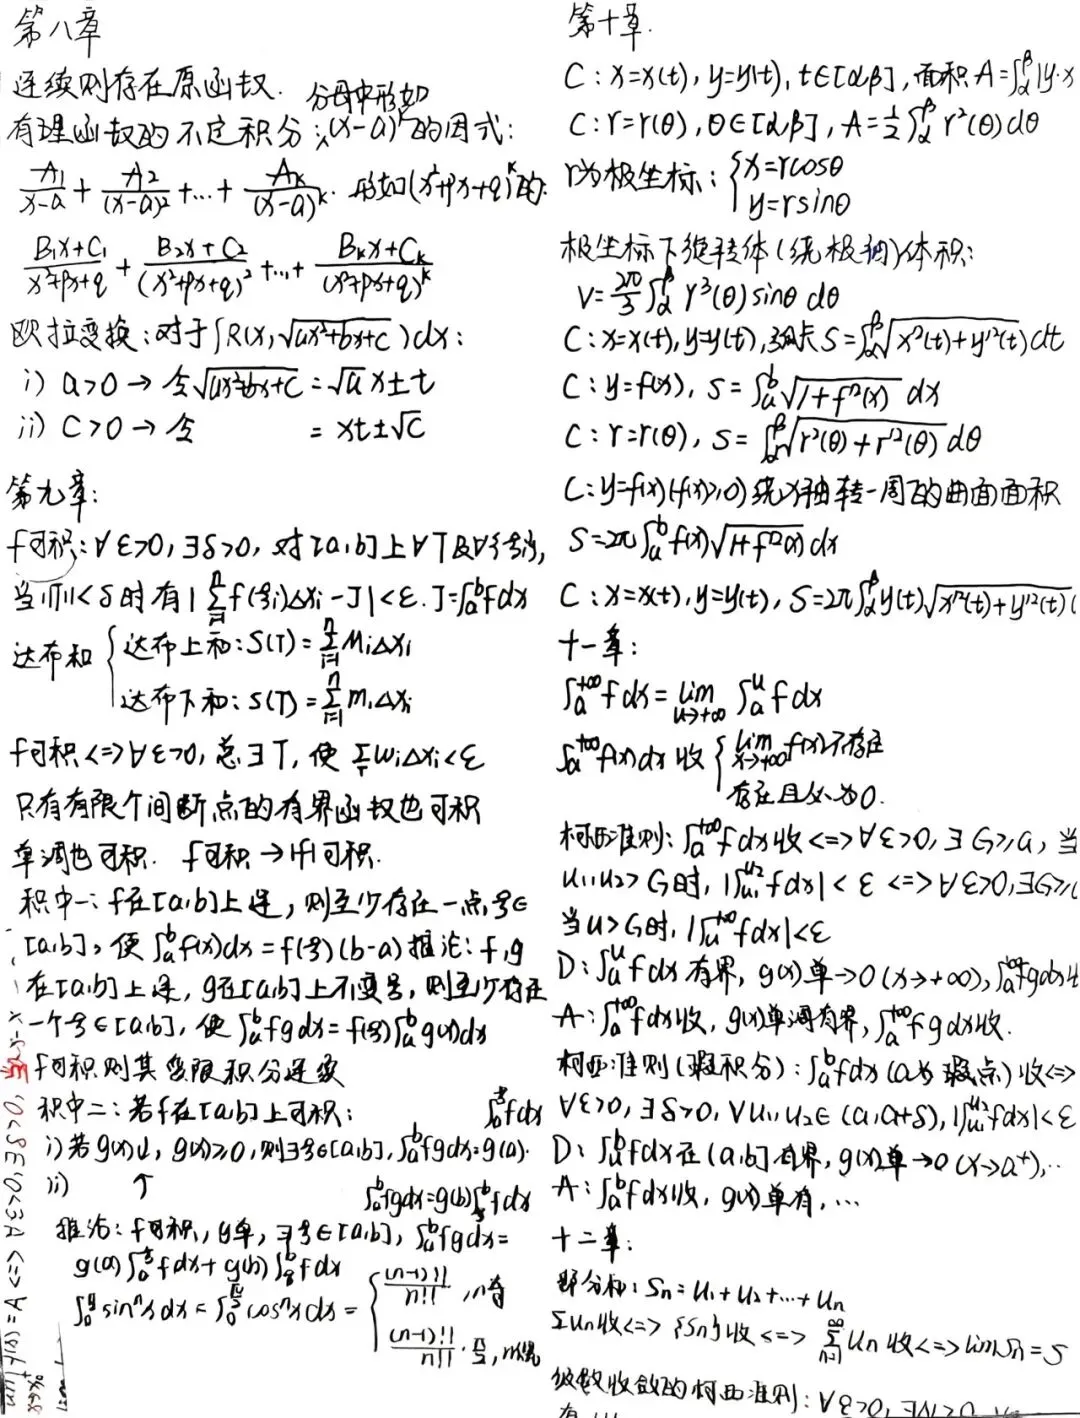 第八章
连续则存在原函数. 分母中形如
有理函数的不定积分:(x-a)^k的因式:
A₁/(x-a) + A₂/(x-a)² + … + A_k/(x-a)^k. 形如(x²+px+q)^k的:
(B₁x+C₁)/(x²+px+q) + (B₂x+C₂)/(x²+px+q)² + … + (B_kx+C_k)/(x²+px+q)^k
欧拉变换:对于∫R(x,√(ax²+bx+c))dx:
i) a>0 → 令√(ax²+bx+c) = √a x±t
ii) c>0 → 令 = xt±√c
第九章:
f可积:∀ε>0,∃δ>0,对[a,b]上∀T及∀{ξi},
当||T||<δ时有|∑_{i=1}^n f(ξi)Δxi-J|<ε. J=∫_a^b fdx
达布和 { 达布上和:S(T)=∑_{i=1}^n MiΔxi
达布下和:s(T)=∑_{i=1}^n miΔxi
f可积<=>∀ε>0,总∃T,使 ∑_T ωiΔxi<ε
只有有限个间断点的有界函数也可积
单调也可积. f可积→|f|可积.
积中一:f在[a,b]上连,则至少存在一点ξ∈
[a,b],使∫_a^b f(x)dx=f(ξ)(b-a) 推论:f,g
在[a,b]上连,g在[a,b]上不变号,则至少存在
一个ξ∈[a,b],使∫_a^b fgdx=f(ξ)∫_a^b g(x)dx
f可积则其变限积分连续
积中二:若f在[a,b]上可积: ∫_a^ξ fdx
i) 若g(x)↓,g(x)≥0,则∃ξ∈[a,b],∫_a^b fgdx=g(a)·
ii) ↑ ∫_a^b fgdx=g(b)∫_ξ^b fdx
推论:f可积,g单,∃ξ∈[a,b],∫_a^b fgdx=
g(a)∫_a^ξ fdx+g(b)∫_ξ^b fdx
∫_0^{π/2} sin^n x dx=∫_0^{π/2} cos^n x dx= { (n-1)!!/n!!,n奇
(n-1)!!/n!!·π/2,n偶
第十章.
C:x=x(t),y=y(t),t∈[α,β],面积A=∫_α^β|y·x
C:r=r(θ),θ∈[α,β],A=½∫_α^β r²(θ)dθ
r为极坐标:{ x=rcosθ
y=rsinθ
极坐标下旋转体(绕极轴)体积:
V=2π/3 ∫_α^β r³(θ)sinθ dθ
C:x=x(t),y=y(t),弧长S=∫_α^β √(x'²(t)+y'²(t))dt
C:y=f(x),S=∫_a^b √(1+f'²(x)) dx
C:r=r(θ),S=∫_α^β √(r²(θ)+r'²(θ)) dθ
C:y=f(x)(f(x)≥0)绕x轴转一周的曲面面积
S=2π∫_a^b f(x)√(1+f'²(x))dx
C:x=x(t),y=y(t),S=2π∫_α^β y(t)√(x'²(t)+y'²(t))
十一章:
∫_a^{+∞} fdx=lim_{u→+∞} ∫_a^u fdx
∫_a^{+∞} f(x)dx收 { lim_{x→+∞} f(x)不存在
存在且必为0.
柯西准则:∫_a^{+∞} fdx收<=>∀ε>0,∃G≥a,当
u₁,u₂>G时,|∫_{u₁}^{u₂} fdx|<ε <=>∀ε>0,∃G≥
当u>G时,|∫_u^{+∞} fdx|<ε
D:∫_a^u fdx有界,g(x)单→0(x→+∞),∫_a^{+∞} fgdx收
A:∫_a^{+∞} fdx收,g(x)单调有界,∫_a^{+∞} fgdx收.
柯西准则(瑕积分):∫_a^b fdx(a为瑕点)收<=>
∀ε>0,∃δ>0,∀u₁,u₂∈(a,a+δ),|∫_{u₁}^{u₂} fdx|<ε
D:∫_u^b fdx在(a,b]有界,g(x)单→0(x→a⁺),…
A:∫_a^b fdx收,g(x)单有,…
十二章:
部分和:Sn=u₁+u₂+…+un
∑un收<=>{Sn}收<=>∑_{n=1}^∞ un收<=>limSn=S
级数收敛的柯西准则:∀ε>0,∃N>0,
有